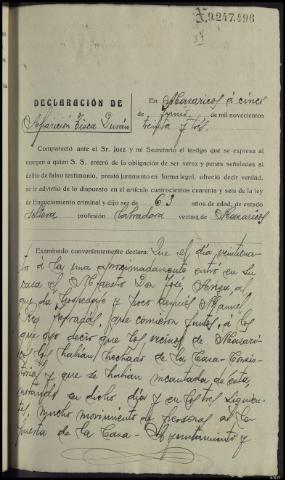 X.9247.496
DECLARACIÓN DE
Aparición
En Mazaricos á cinco
de Junio de mil novecientos
treinta y tres
Compareció ante el Sr. Juez y mi Secretario el testigo que se expresa al
margen a quién S. S. enteró de la obligación de ser veraz y penas señaladas al
delito de falso testimonio, prestó juramento en forma legal, ofreció decir verdad,
se le advirtió de lo dispuesto en el artículo cuatrocientos cuarenta y seis de la ley
de Enjuiciamiento criminal y dijo ser de 63 años de edad, de estado
soltera profesión labradora vecina de Mazaricos
Examinado convenientemente declara: Que el día
á la una aproximadamente entró en su
casa el Maestro Don José al
que da hospedaje y poco después Manuel
que comieron juntos, á los
que oyó decir que los vecinos de Mazari-
cos los habían hechado de la Casa-Consis-
torial y que se habían incautado de esta,
en dicho día y en los tres siguien-
tes mucho movimiento de personal en la
puerta de la Casa-Ayuntamiento y